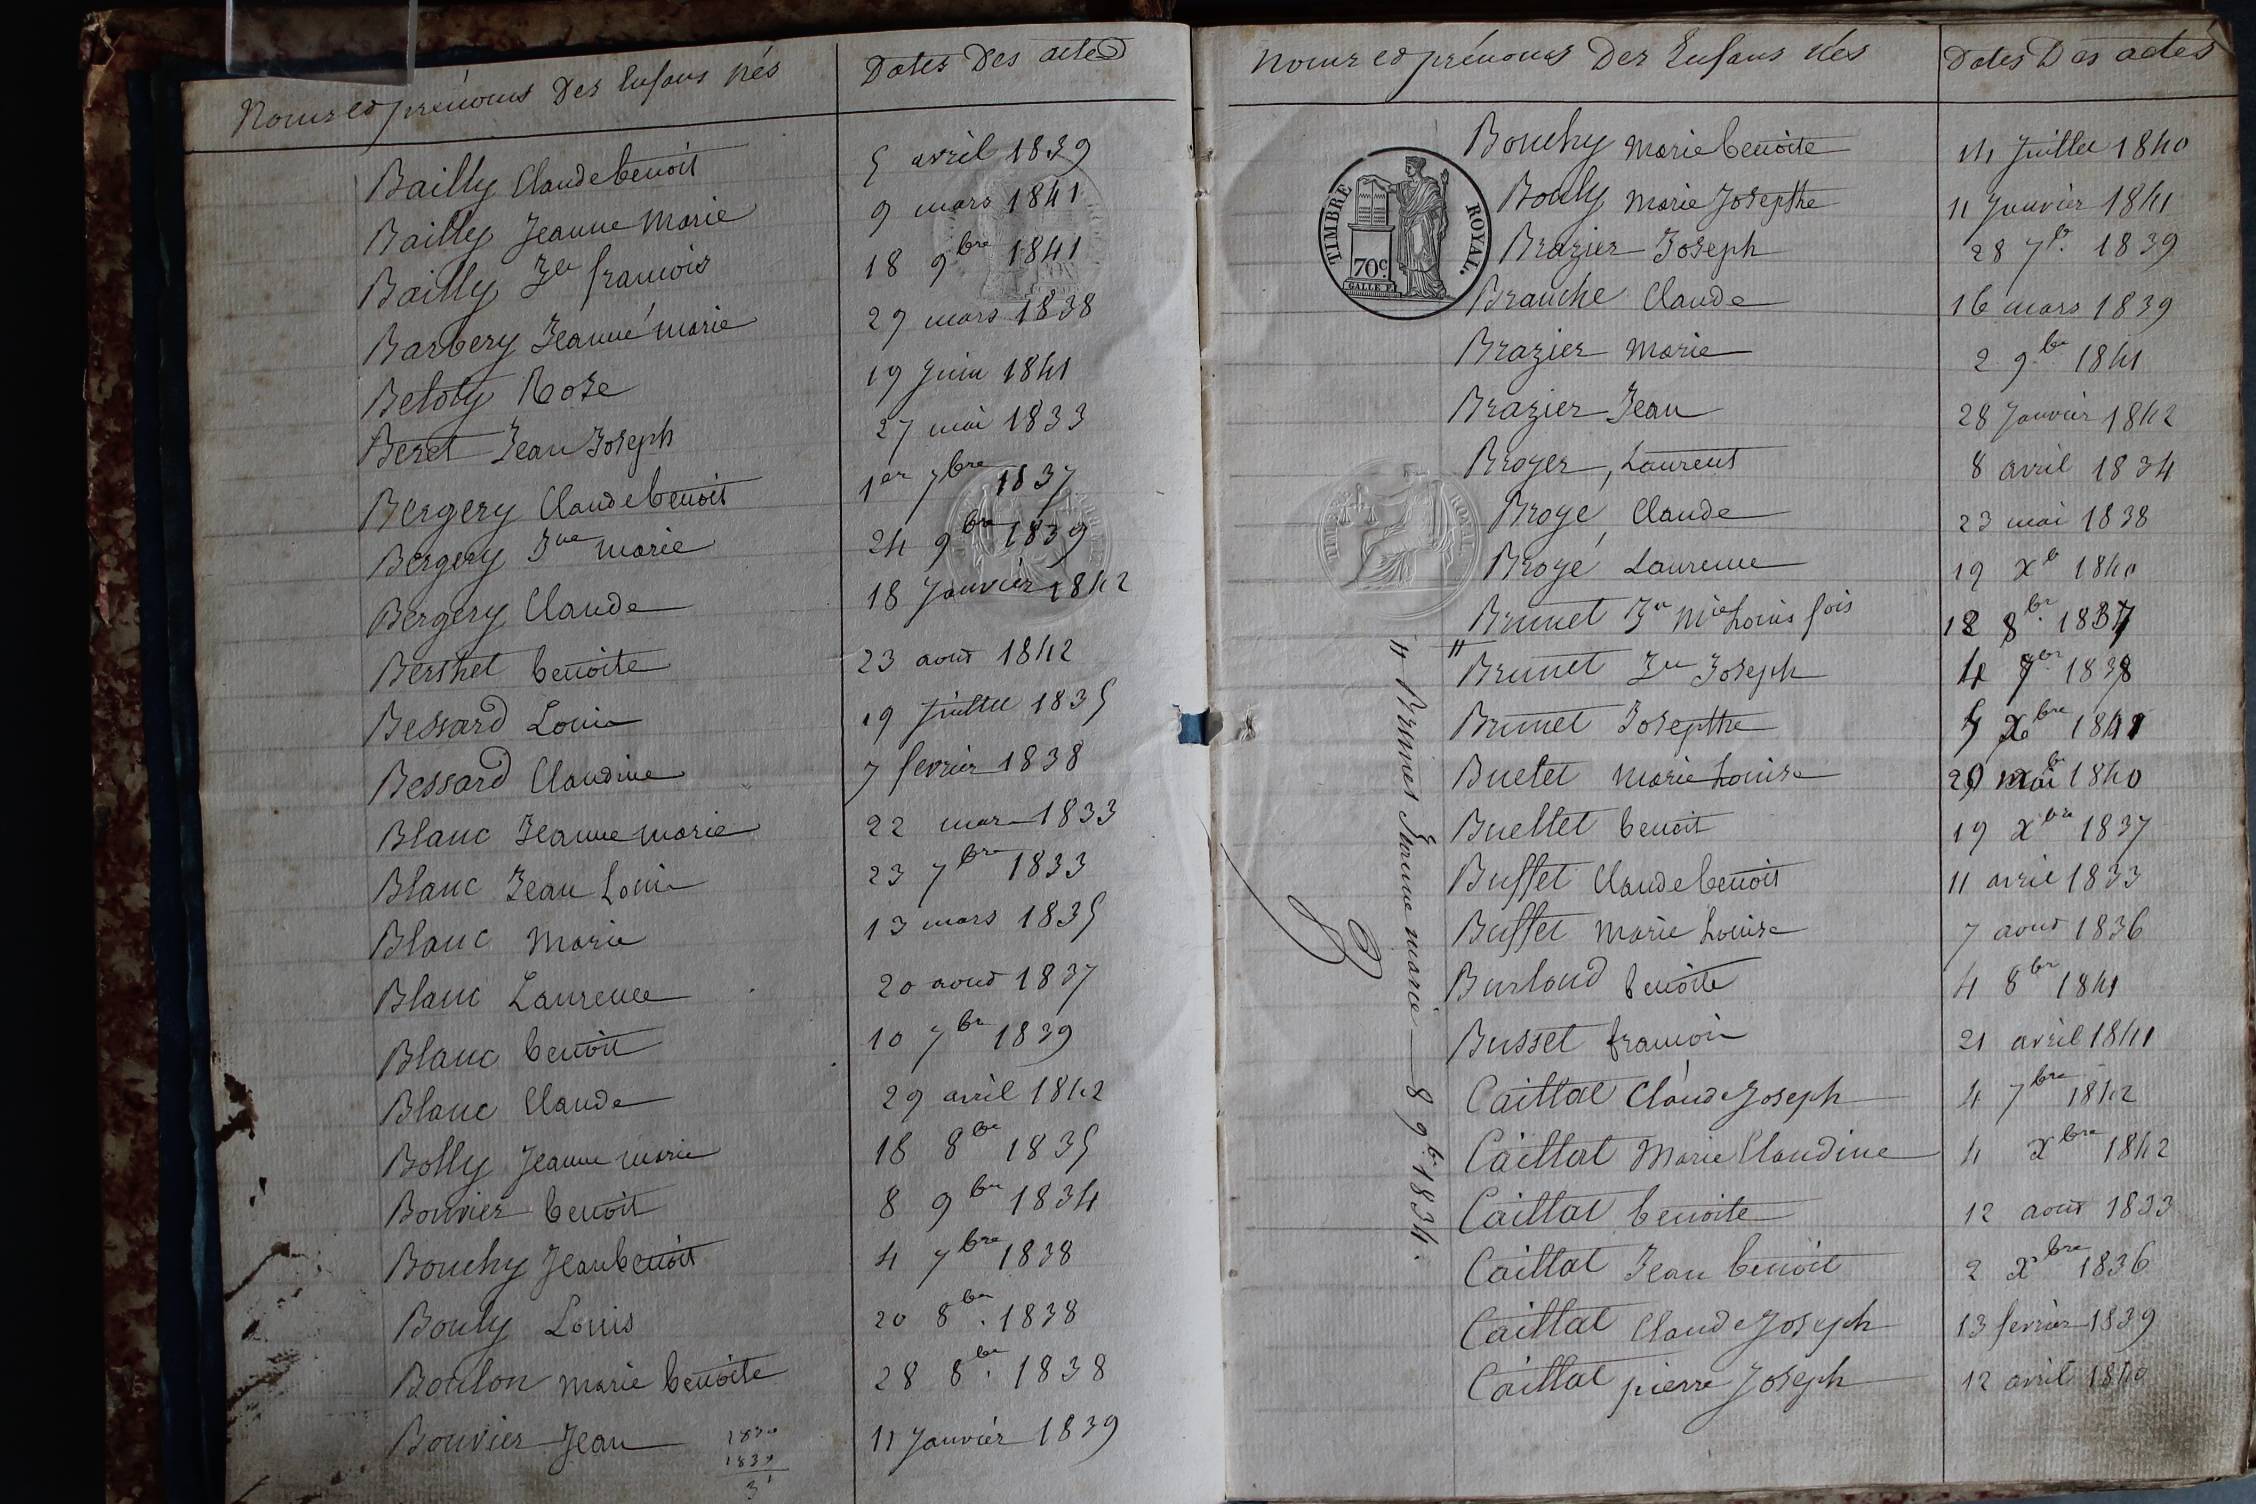 Noms et prénoms Des Enfans nés Dates Des actes
Bailly Claude benoit 5 avril 1839
Bailly Jeanne Marie 9 mars 1841
Bailly Jn francois 18 9bre 1841
Barbery Jeanne marie 29 mars 1838
Betoty Rose 19 Juin 1841
Beret Jean Joseph 27 mai 1833
Bergery Claude benoit 1er 7bre 1837
Bergery Jne marie 24 9bre 1839
Bergery Claude 18 Janvier 1842
Berthet benoite 23 aout 1842
Bessard Louis 19 Juillet 1835
Bessard Claudine 7 fevrier 1838
Blanc Jeanne marie 22 mars 1833
Blanc Jean Louis 23 7bre 1833
Blanc Marie 13 mars 1835
Blanc Laurence 20 aout 1837
Blanc benoit 10 7bre 1839
Blanc Claude 29 avril 1842
Bolly Jeanne marie 18 8bre 1835
Bouvier benoit 8 9bre 1834
Bouchy Jean benoit 4 7bre 1838
Bouly Louis 20 8bre. 1838
Boulon marie benoite 28 8bre. 1838
Bouvier Jean 11 Janvier 1839
Noms et prénoms Des Enfans nés Dates Des actes
TIMBRE ROYAL.
70c.
Bouchy marie benoite 14 Juillet 1840
Bouly marie Josepthe 11 Janvier 1841
Brazier Joseph 28 7br. 1839
Branche Claude 16 mars 1839
Brazier marie 2 9bre 1841
Brazier Jean 28 Janvier 1842
Broyer, Laurent 8 avril 1834
Broyé Claude 23 mai 1838
Broyé Laurence 19 Xb 1840
Brunet Jn Mie Louis fois 12 8br. 1837
" Brunet Jn Joseph 4 7br 1838
Brunet Josepthe 5 Xbre 1841
Buetet marie Louise 29 mai 1840
Buettet benoit 19 Xbre 1837
Buffet Claude benoit 11 avril 1833
Buffet marie Louise 7 aout 1836
Burloud benoite 4 8br 1841
Busset francois 21 avril 1841
Caittat Claude Joseph 4 7bre 1842
Caittat Marie Claudine 4 Xbre 1842
Caittat benoite 12 aout 1833
Caittat Jean benoit 2 Xbre 1836
Caittat Claude Joseph 13 fevrier 1839
Caittat pierre Joseph 12 avril 1840
" Brunet Jeanne marie — 8 9b. 1834.